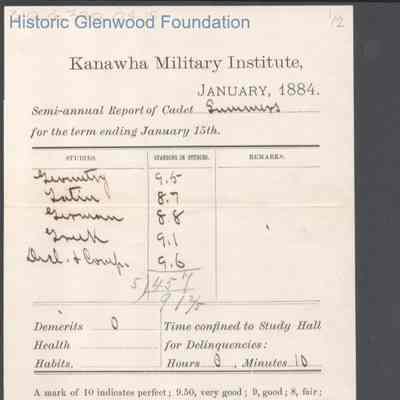 Historic Glenwood Foundation
12
Kanawha Military Institute,
JANUARY, 1884.
Semi-annual Report of Cadet Summers
for the term ending January 15th.
STUDIES. STANDING IN STUDIES. REMARKS.
Geometry 9.5
Latin 8.7
German 8.8
Greek 9.1
Decl. & Comp. 9.6
5)45 7
9 1 2/5
Demerits 0 Time confined to Study Hall
Health for Delinquencies:
Habits, Hours 0, Minutes 10
A mark of 10 indicates perfect; 9.50, very good; 9, good; 8, fair;